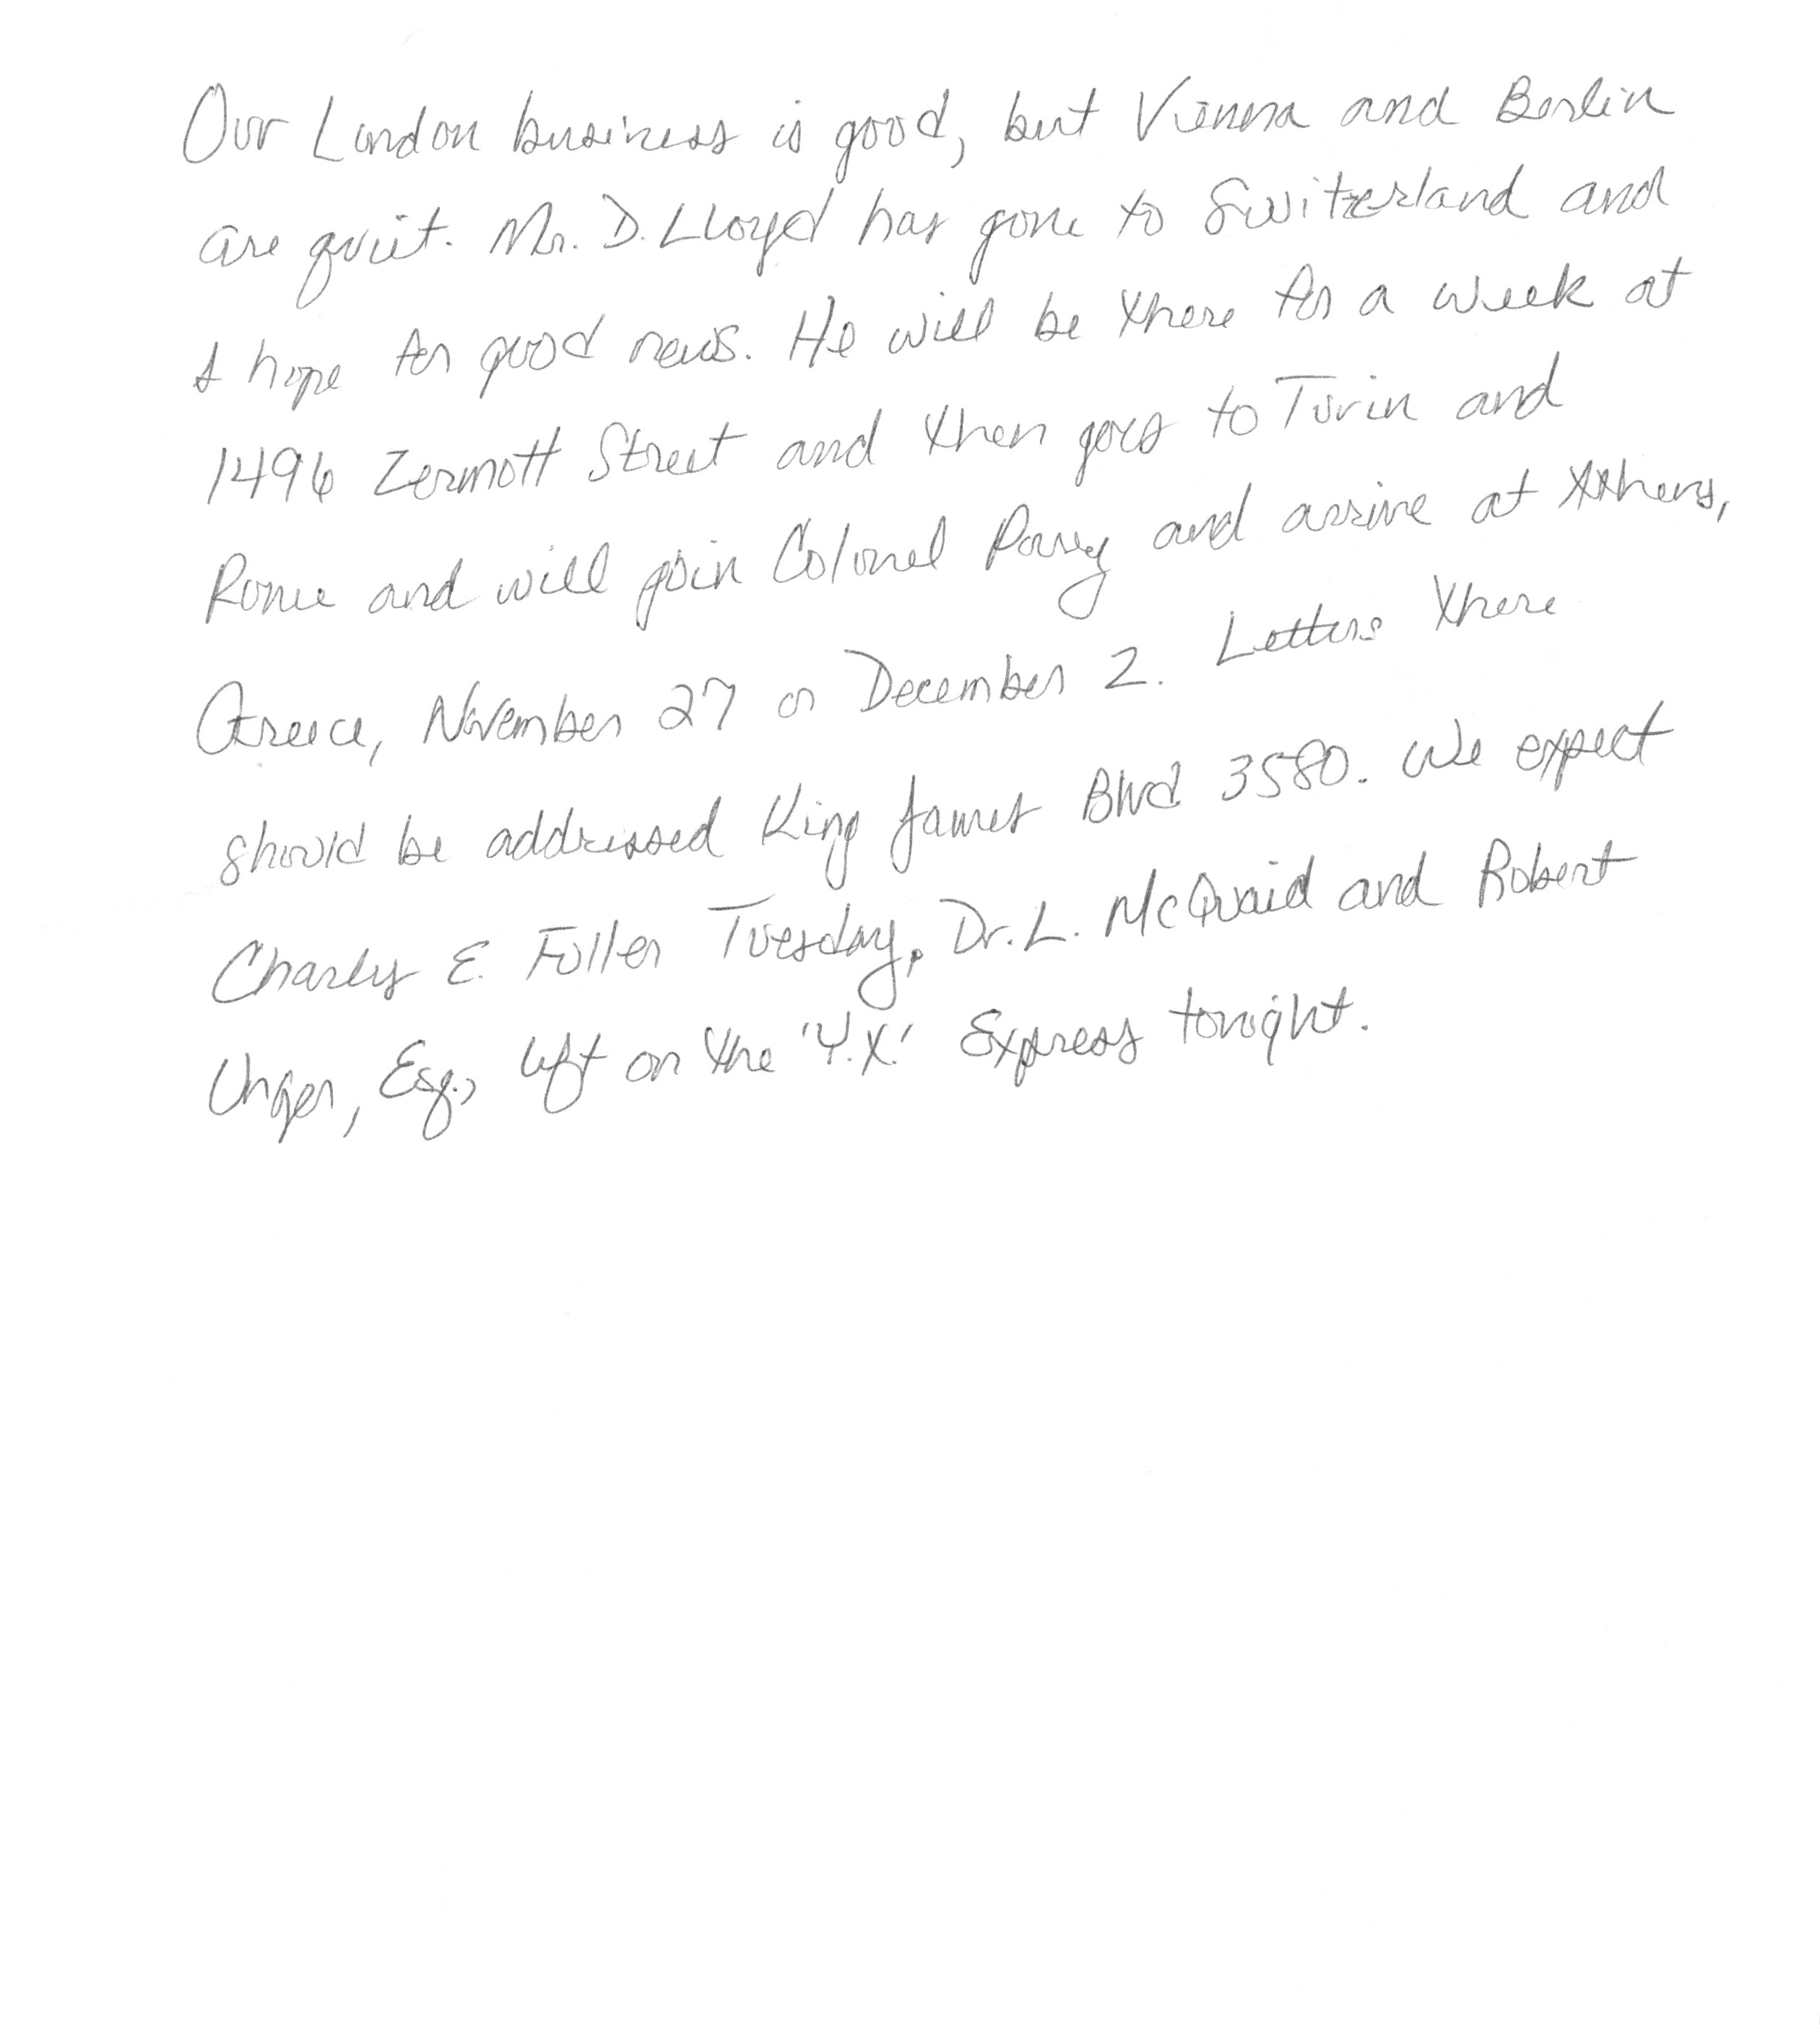 Our London business is good, but Vienna and Berlin
are quiet. Mr. D. Lloyd has gone to Switzerland and
I hope for good news. He will be there for a week at
1496 Zermott Street and then goes to Turin and
Rome and will join Colonel Parry and arrive at Athens,
Greece, November 27 or December 2. Letters there
should be addressed King James Blvd 3580. We expect
Charles E. Fuller Tuesday. Dr. L. McQuaid and Robert
Unger, Esq., left on the 'Y.X.' Express tonight.